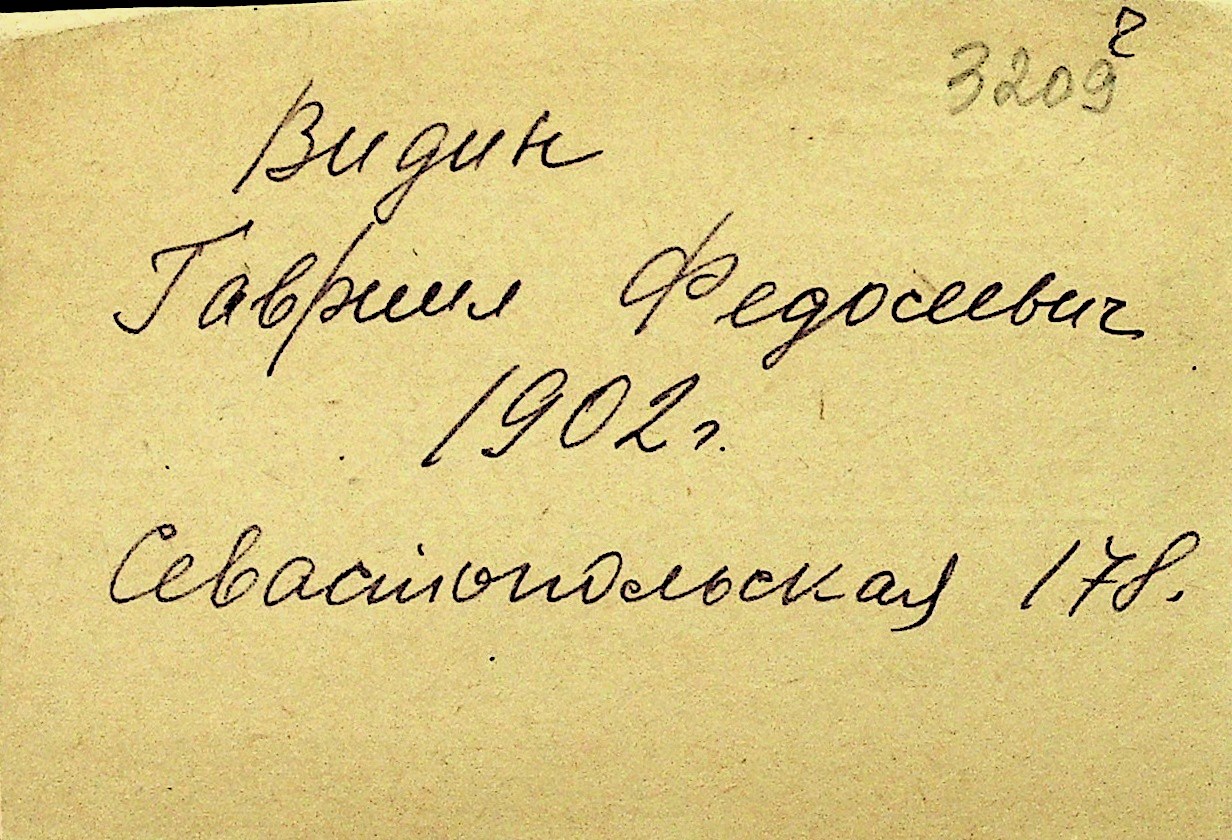 3209
Видин
Гавриил Федосеевич
1902 г.
Севастопольская 178.